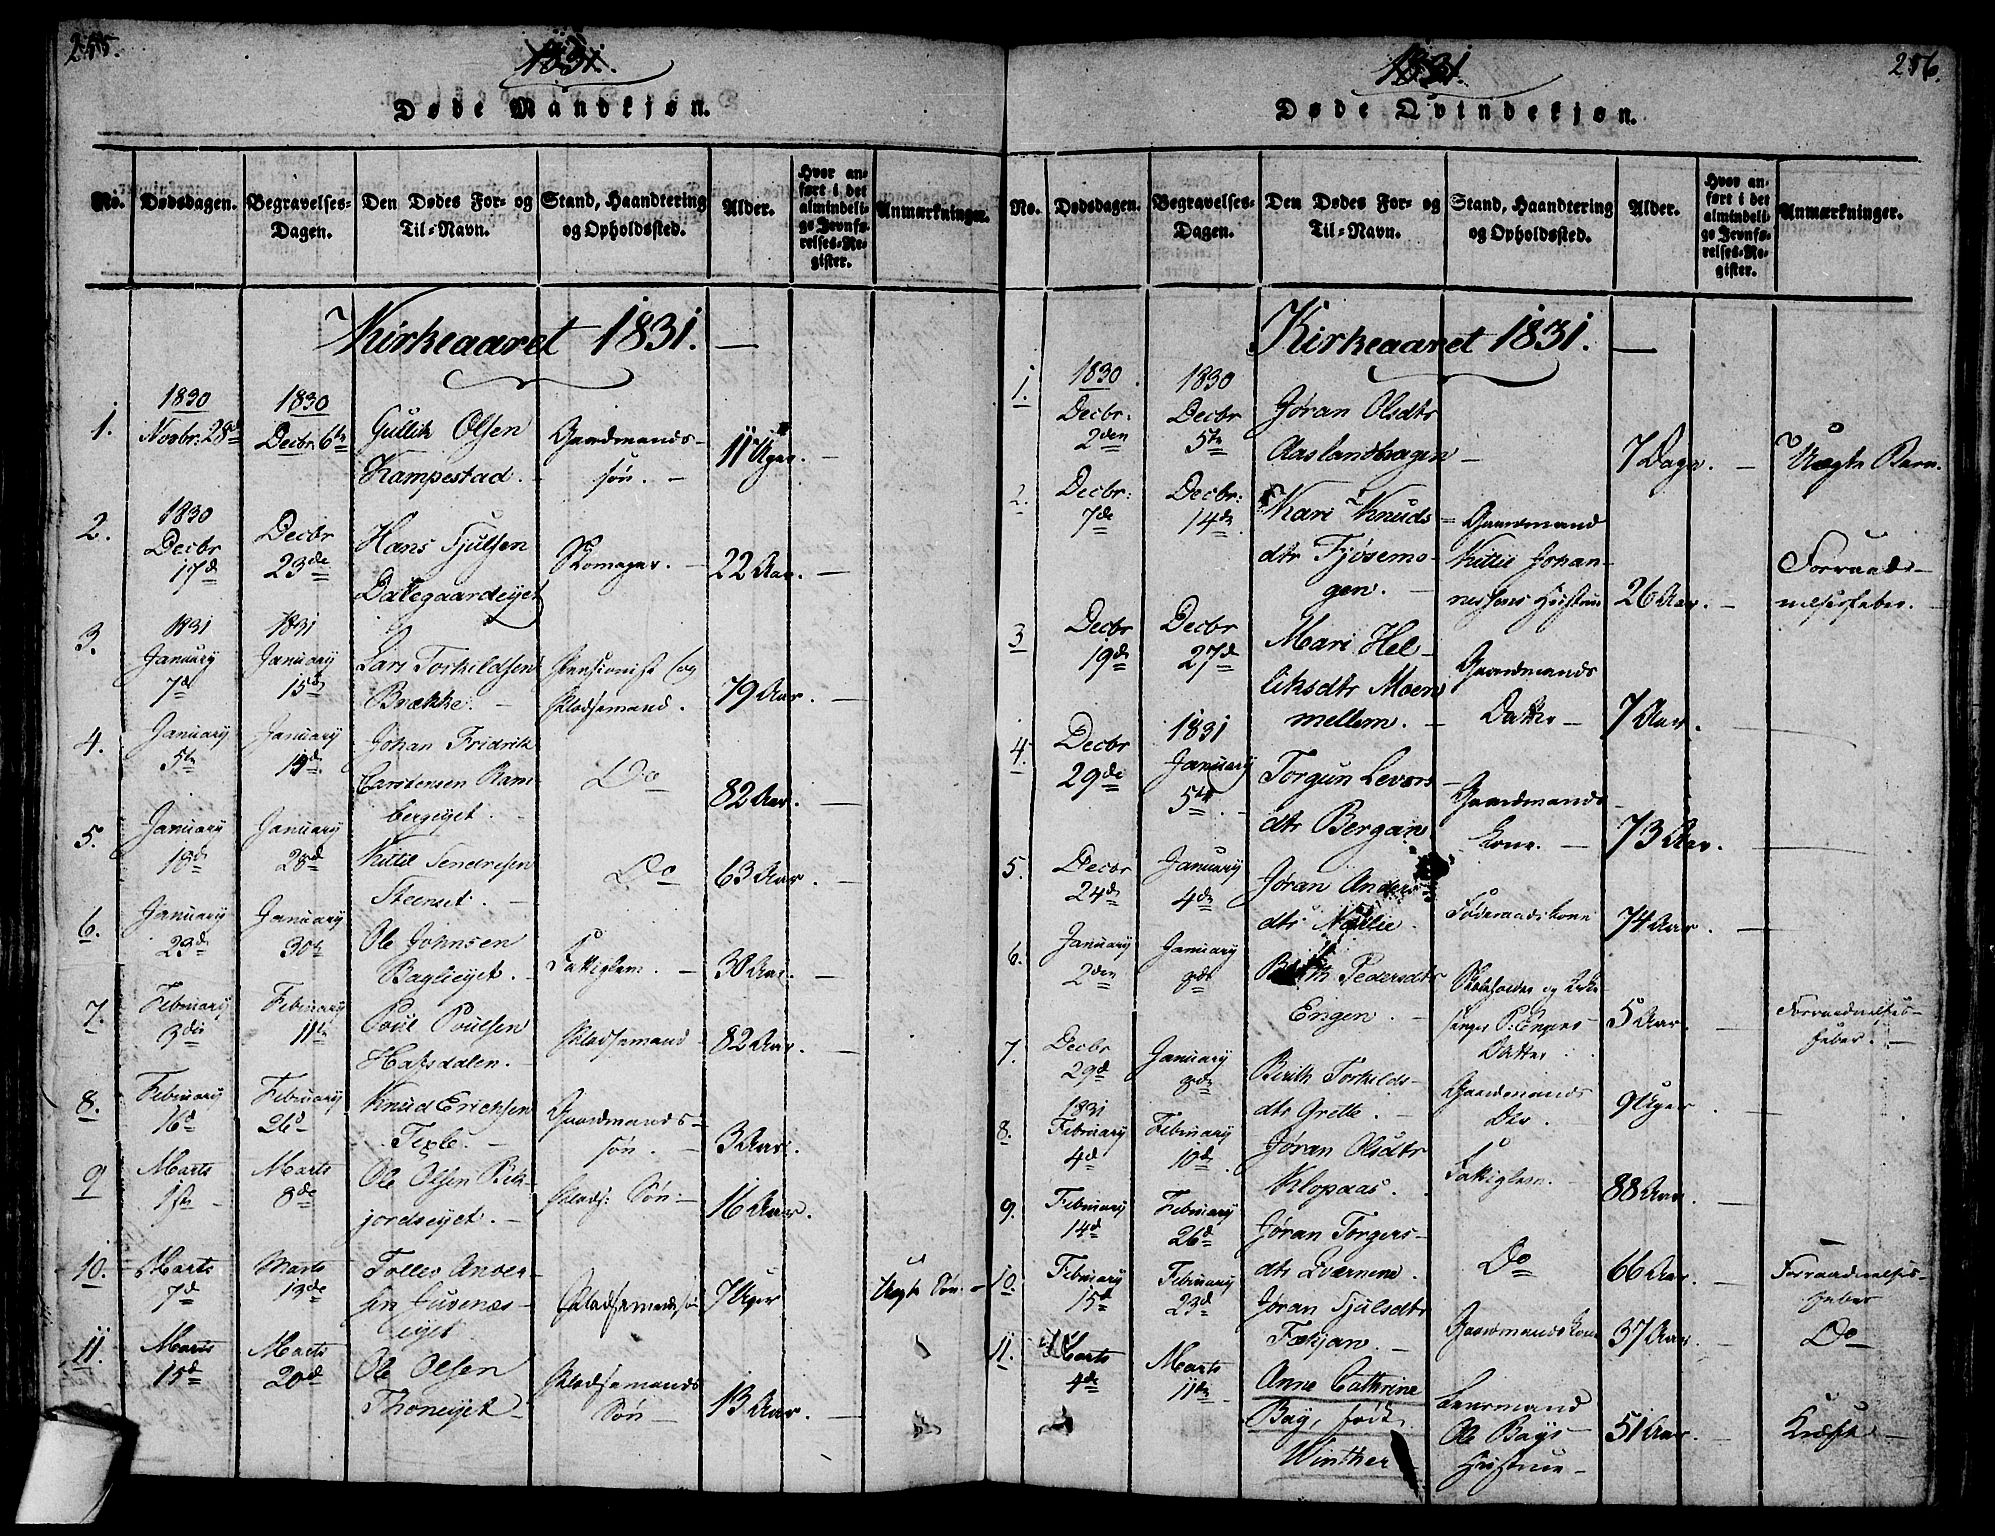 255.
1831.
Døde Mandkjøn.
No.
Dødsdagen.
Begravelses-
Dagen.
Den Dødes For- og
Til-Navn.
Stand, Haandtering
og Opholdssted.
Alder.
Hvor an-
ført i det
almindeli-
ge Jevnfø-
relses-Re-
gister.
Anmærkninger.
Kirkeaaret 1831. —
1.
1830
Novbr: 28de
1830
Decbr. 6te
Gullik Olsen
Kampestad. -
Gaardmands-
søn. -
11 Uger. -
2.
1830
Decbr
17de
Decbr
23de
Hans Tjulsen
Dalegaardeyet
Skomager. -
22 Aar. -
3.
1831
January
7de
1831
January
15de
Lars Torkildsen
Brække. -
Pensionist og
Pladsemand.
79 Aar. -
4.
January
5te
January
Johan Fridrik
Carstensen Ram-
bergeyet. -
Do
82 Aar. -
5.
January
18de
January
28de
Kittil
Steenset. -
Do
63 Aar. -
6.
January
23de
January
30te
Ole Johnsen
Baglieyet. -
Fattiglem. -
30 Aar. -
7.
February
3die
February
11te
Poul Poulsen
Hafsdalen. -
Pladsemand -
82 Aar. -
8.
February
16de
February
26de
Knud Erichsen
Texle. -
Gaardmands-
søn. -
3 Aar.
9
Marts
1ste
Marts
8de
Ole Olsen Bek-
jordseyet. -
Plads: Søn: -
16 Aar.
10.
Marts
7de
Marts
13de
Tollev Anver-
sen Juvenæs-
eyet
Pladsemandssøn
7 Uger
Uægte Søn. -
11.
Marts
15de
Marts
20de
Ole Olsen
Thoneyet -
Pladsemands
Søn -
13 Aar. -
256.
1831.
Døde Qvindekjøn.
No.
Dødsdagen.
Begravelses-
Dagen.
Den Dødes For- og
Til-Navn.
Stand, Haandtering
og Opholdssted.
Alder.
Hvor an-
ført i det
almindeli-
ge Jevnfø-
relses-Re-
gister.
Anmærkninger.
Kirkeaaret 1831. —
1.
1830
Decbr:
2den
1830
Decbr
5te
Jøran Olsdtr
Aaslandhagen
-
7 Dage. -
Uægte Barn.
2.
Decbr:
7de
Decbr:
14de
Kari Knuds-
dtr Tjøsemo-
gen. -
Gaardmand
Kittil Johan-
nessens Hustrue
26 Aar. -
Forraad-
nelsesfeber. -
3
Decbr
19de
Decbr
27de
Mari Hel-
liksdtr Moen
mellem. -
Gaardmands
Datter -
7 Aar. -
4.
Decbr
29de
1831
January
5te -
Torgun Levors-
dtr Bergan
Gaardmands-
kone. -
73 Aar.
5.
Decbr
24de
January
4de
Jøran Anders-
dtr Nørlie.
Føderaadskone
74 Aar. -
6.
January
2den
January
Berith Pedersdtr
Engen. -
Skoleholder og Kirke-
sanger P. Engens
Datter
5 Aar. -
Forraadnelses-
feber. -
7.
Decbr
29de
January
Berith Torkilds-
dtr Grette. -
Gaardmands
Dtr. -
9 Uger -
8.
1831
February
4de
February
10de
Jøran Olsdtr
Klopaas. -
Fattiglem. -
88 Aar. -
9.
February
14de
February
26de
Jøran Torgers-
dtr Qværnene.
Do
66 Aar. -
Forraadnelses-
feber
10.
February
15de
February
23de
Jøran Tjulsdtr
Fækjan. -
Gaardmandskone
37 Aar. -
Do
11.
Marts
4de
Marts
11te
Anne Cathrine
Bay, født
Winther
Leensmand
Ole Bays
Hustrue -
51 Aar. -
Kræft -